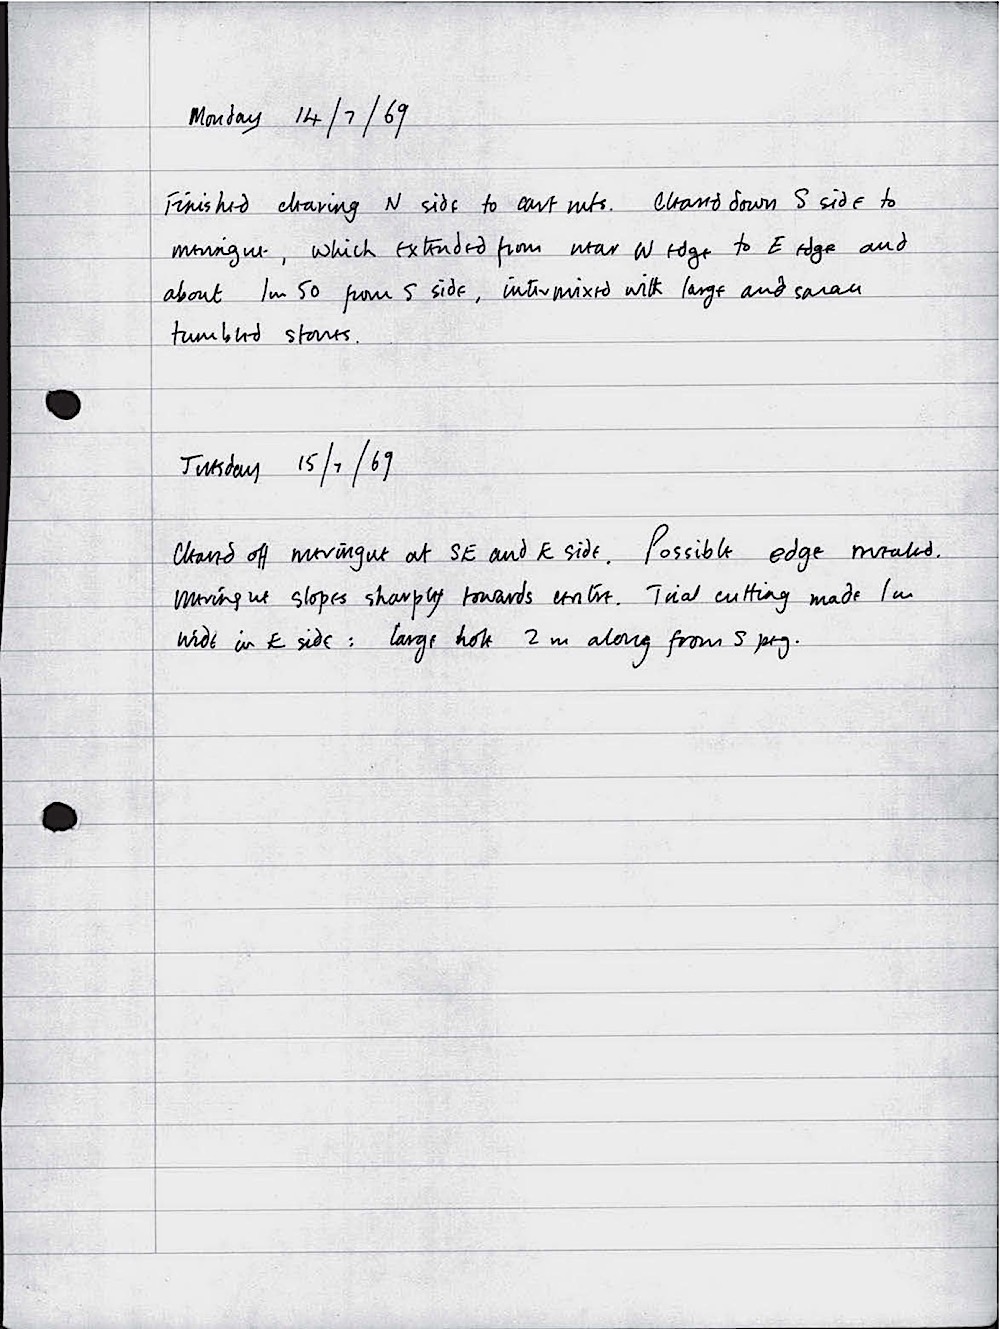 Monday 14/7/69
Finished clearing N side to cart ruts. Cleaned down S side to
meringue, which extended from near W edge to E edge and
about 1m 50 from S side, intermixed with large and small
tumbled stones.
Tuesday 15/7/69
Cleaned off meringue at SE and E side. Possible edge revealed.
Meringue slopes sharply towards centre. Trial cutting made 1m
wide in E side: large hole 2 m along from S peg.